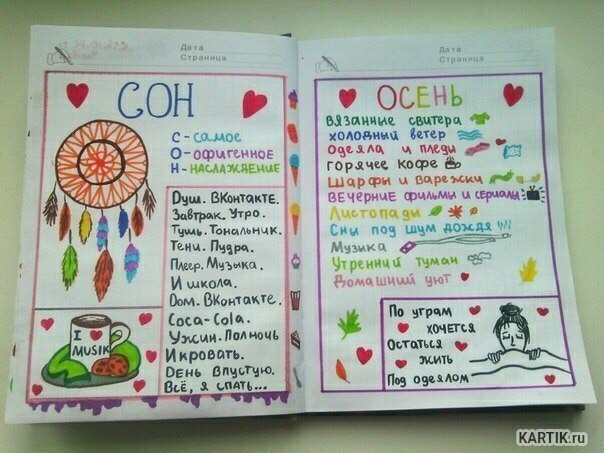 Дата
Страница
СОН
С-самое
О-офигенное
Н-наслаждение
Душ. ВКонтакте.
Завтрак. Утро.
Тушь. Тональник.
Тени. Пудра.
Плеер. Музыка.
И школа.
Дом. ВКонтакте.
Coca-Cola.
Ужин. Полночь
И кровать.
День впустую.
Всё, я спать...
I
MUSIK
Дата
Страница
ОСЕНЬ
Вязанные свитера
холодный ветер
Одеяла и пледы
горячее кофе
Шарфы и варежки
Вечерние фильмы и сериалы
Листопады
Сны под шум дождя
Музыка
Утренний туман
Домашний уют
По утрам
хочется
Остаться
жить
Под одеялом
KARTIK.ru